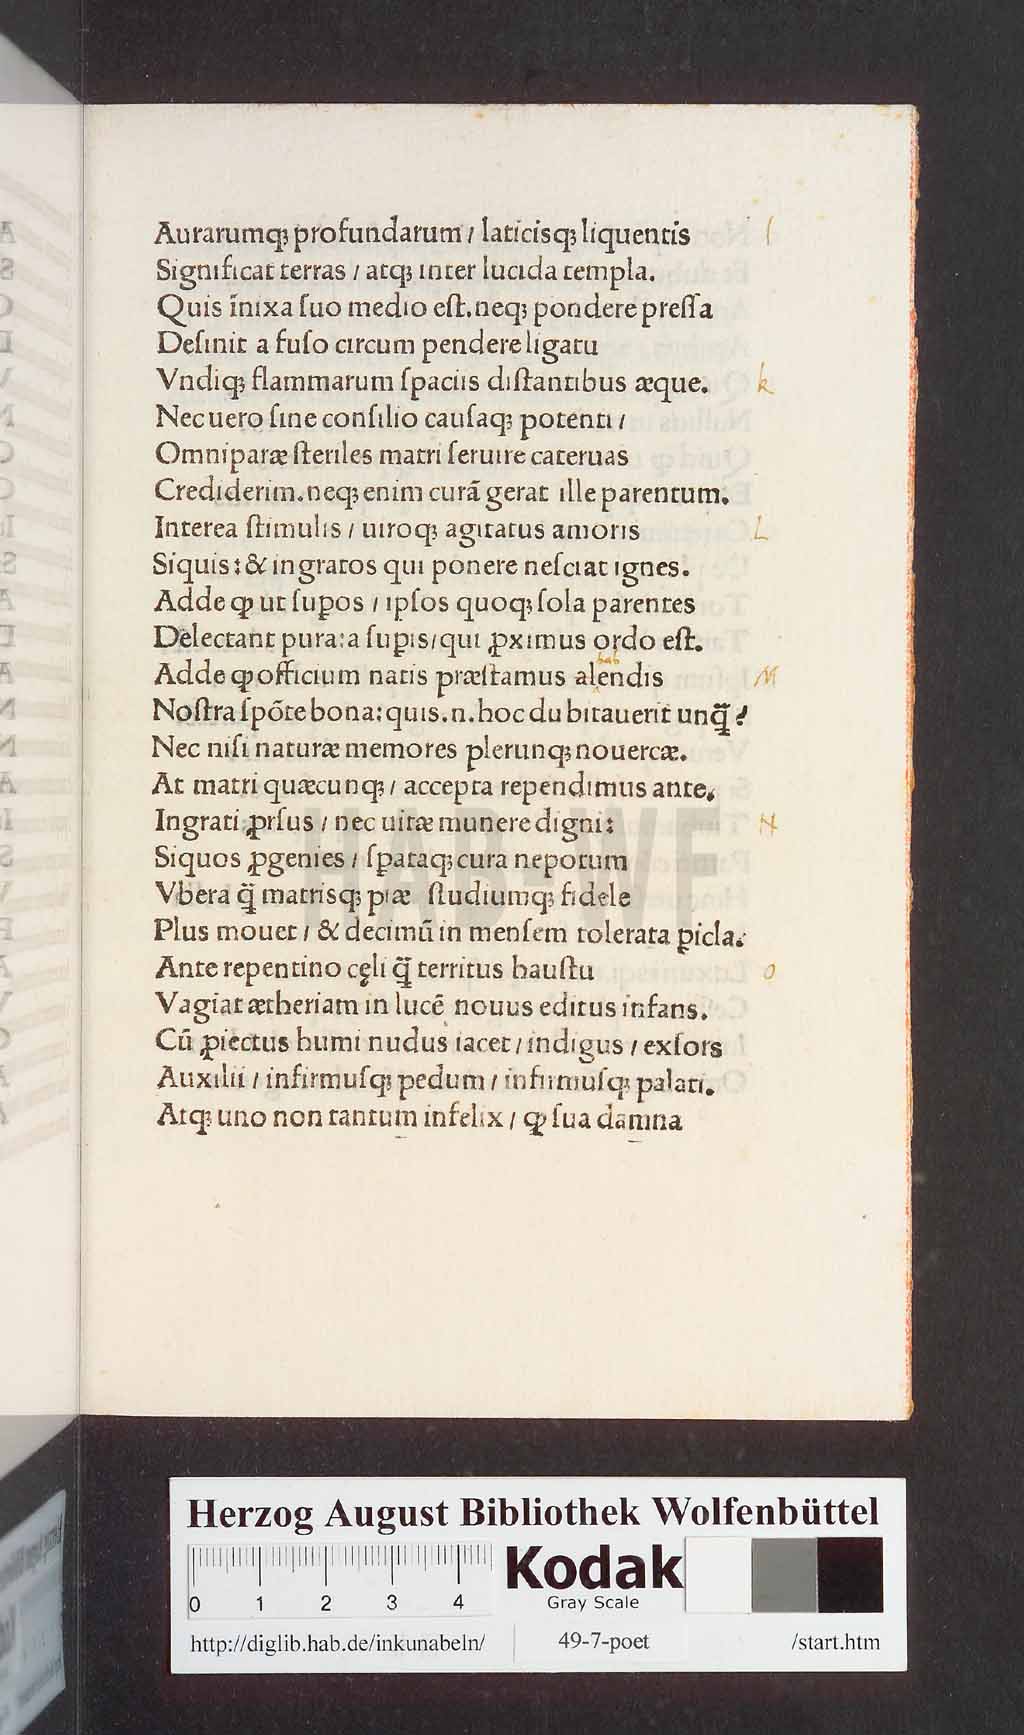 Aurarumqꝫ profundarum / laticisqꝫ liquentis l
Significat terras / atqꝫ inter lucida templa.
Quis īnixa ſuo medio eſt. neqꝫ pondere preſſa
Deſinit a fuſo circum pendere ligatu
Vndiqꝫ flammarum ſpaciis diſtantibus æque. k
Nec uero ſine conſilio cauſaqꝫ potenti /
Omniparæ ſteriles matri ſeruire cateruas
Crediderim. neqꝫ enim curā gerat ille parentum.
Interea ſtimulis / uiroqꝫ agitatus amoris L
Siquis: & ingratos qui ponere neſciat ignes.
Adde ꝙ ut ſuꝑos / ipſos quoqꝫ ſola parentes
Delectant pura: a ſuꝑis / qui ꝓximus ordo eſt.
hab
Adde ꝙ officium natis præſtamus alendis M
Noſtra ſpōte bona: quis .n. hoc dubitauerit unq̃?
Nec niſi naturæ memores plerunqꝫ nouercæ.
At matri quæcunqꝫ / accepta rependimus ante.
Ingrati ꝓrſus / nec uitæ munere digni: N
Siquos ꝓgenies / ſꝑataqꝫ cura nepotum
Vbera q̃ matrisqꝫ piæ ſtudiumqꝫ fidele
Plus mouet / & decimū in menſem tolerata ꝑicla.
Ante repentino cęli q̃ territus hauſtu o
Vagiat ætheriam in lucē nouus editus infans.
Cū ꝓiectus humi nudus iacet / indigus / exſors
Auxilii / infirmuſqꝫ pedum / infirmuſqꝫ palati.
Atqꝫ uno non tantum infelix / ꝙ ſua damna
HAB-WF
Herzog August Bibliothek Wolfenbüttel
0 1 2 3 4
Kodak
Gray Scale
http://diglib.hab.de/inkunabeln/ 49-7-poet /start.htm